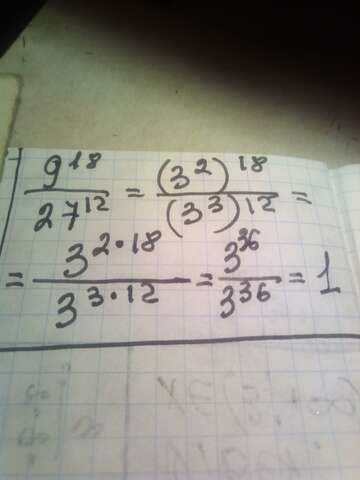 9^18 / 27^12 = (3^2)^18 / (3^3)^12 =
= 3^2·18 / 3^3·12 = 3^36 / 3^36 = 1